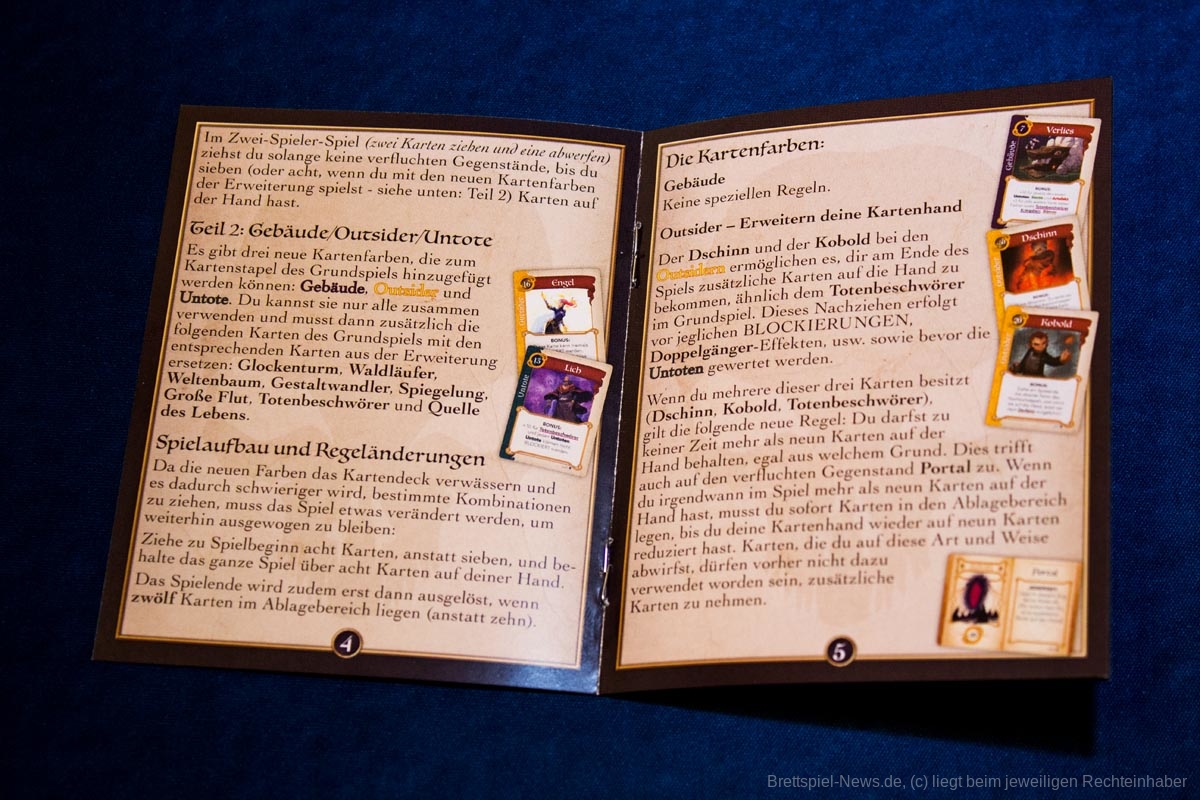 Im Zwei-Spieler-Spiel (zwei Karten ziehen und eine abwerfen)
ziehst du solange keine verfluchten Gegenstände, bis du
sieben (oder acht, wenn du mit den neuen Kartenfarben
der Erweiterung spielst - siehe unten: Teil 2) Karten auf
der Hand hast.
Teil 2: Gebäude/Outsider/Untote
Es gibt drei neue Kartenfarben, die zum
Kartenstapel des Grundspiels hinzugefügt
werden können: Gebäude, Outsider und
Untote. Du kannst sie nur alle zusammen
verwenden und musst dann zusätzlich die
folgenden Karten des Grundspiels mit den
entsprechenden Karten aus der Erweiterung
ersetzen: Glockenturm, Waldläufer,
Weltenbaum, Gestaltwandler, Spiegelung,
Große Flut, Totenbeschwörer und Quelle
des Lebens.
16 Engel
Outsider
BONUS:
13 Lich
Untote
BONUS:
Totenbeschwörer
BLOCKIERT
Spielaufbau und Regeländerungen
Da die neuen Farben das Kartendeck verwässern und
es dadurch schwieriger wird, bestimmte Kombinationen
zu ziehen, muss das Spiel etwas verändert werden, um
weiterhin ausgewogen zu bleiben:
Ziehe zu Spielbeginn acht Karten, anstatt sieben, und be-
halte das ganze Spiel über acht Karten auf deiner Hand.
Das Spielende wird zudem erst dann ausgelöst, wenn
zwölf Karten im Ablagebereich liegen (anstatt zehn).
4
Die Kartenfarben:
Gebäude
Keine speziellen Regeln.
Outsider – Erweitern deine Kartenhand
Der Dschinn und der Kobold bei den
Outsidern ermöglichen es, dir am Ende des
Spiels zusätzliche Karten auf die Hand zu
bekommen, ähnlich dem Totenbeschwörer
im Grundspiel. Dieses Nachziehen erfolgt
vor jeglichen BLOCKIERUNGEN,
Doppelgänger-Effekten, usw. sowie bevor die
Untoten gewertet werden.
7 Verlies
Gebäude
BONUS:
Dschinn
BONUS:
20 Kobold
BONUS:
Wenn du mehrere dieser drei Karten besitzt
(Dschinn, Kobold, Totenbeschwörer),
gilt die folgende neue Regel: Du darfst zu
keiner Zeit mehr als neun Karten auf der
Hand behalten, egal aus welchem Grund. Dies trifft
auch auf den verfluchten Gegenstand Portal zu. Wenn
du irgendwann im Spiel mehr als neun Karten auf der
Hand hast, musst du sofort Karten in den Ablagebereich
legen, bis du deine Kartenhand wieder auf neun Karten
reduziert hast. Karten, die du auf diese Art und Weise
abwirfst, dürfen vorher nicht dazu
verwendet worden sein, zusätzliche
Karten zu nehmen.
Portal
5
Brettspiel-News.de, (c) liegt beim jeweiligen Rechteinhaber